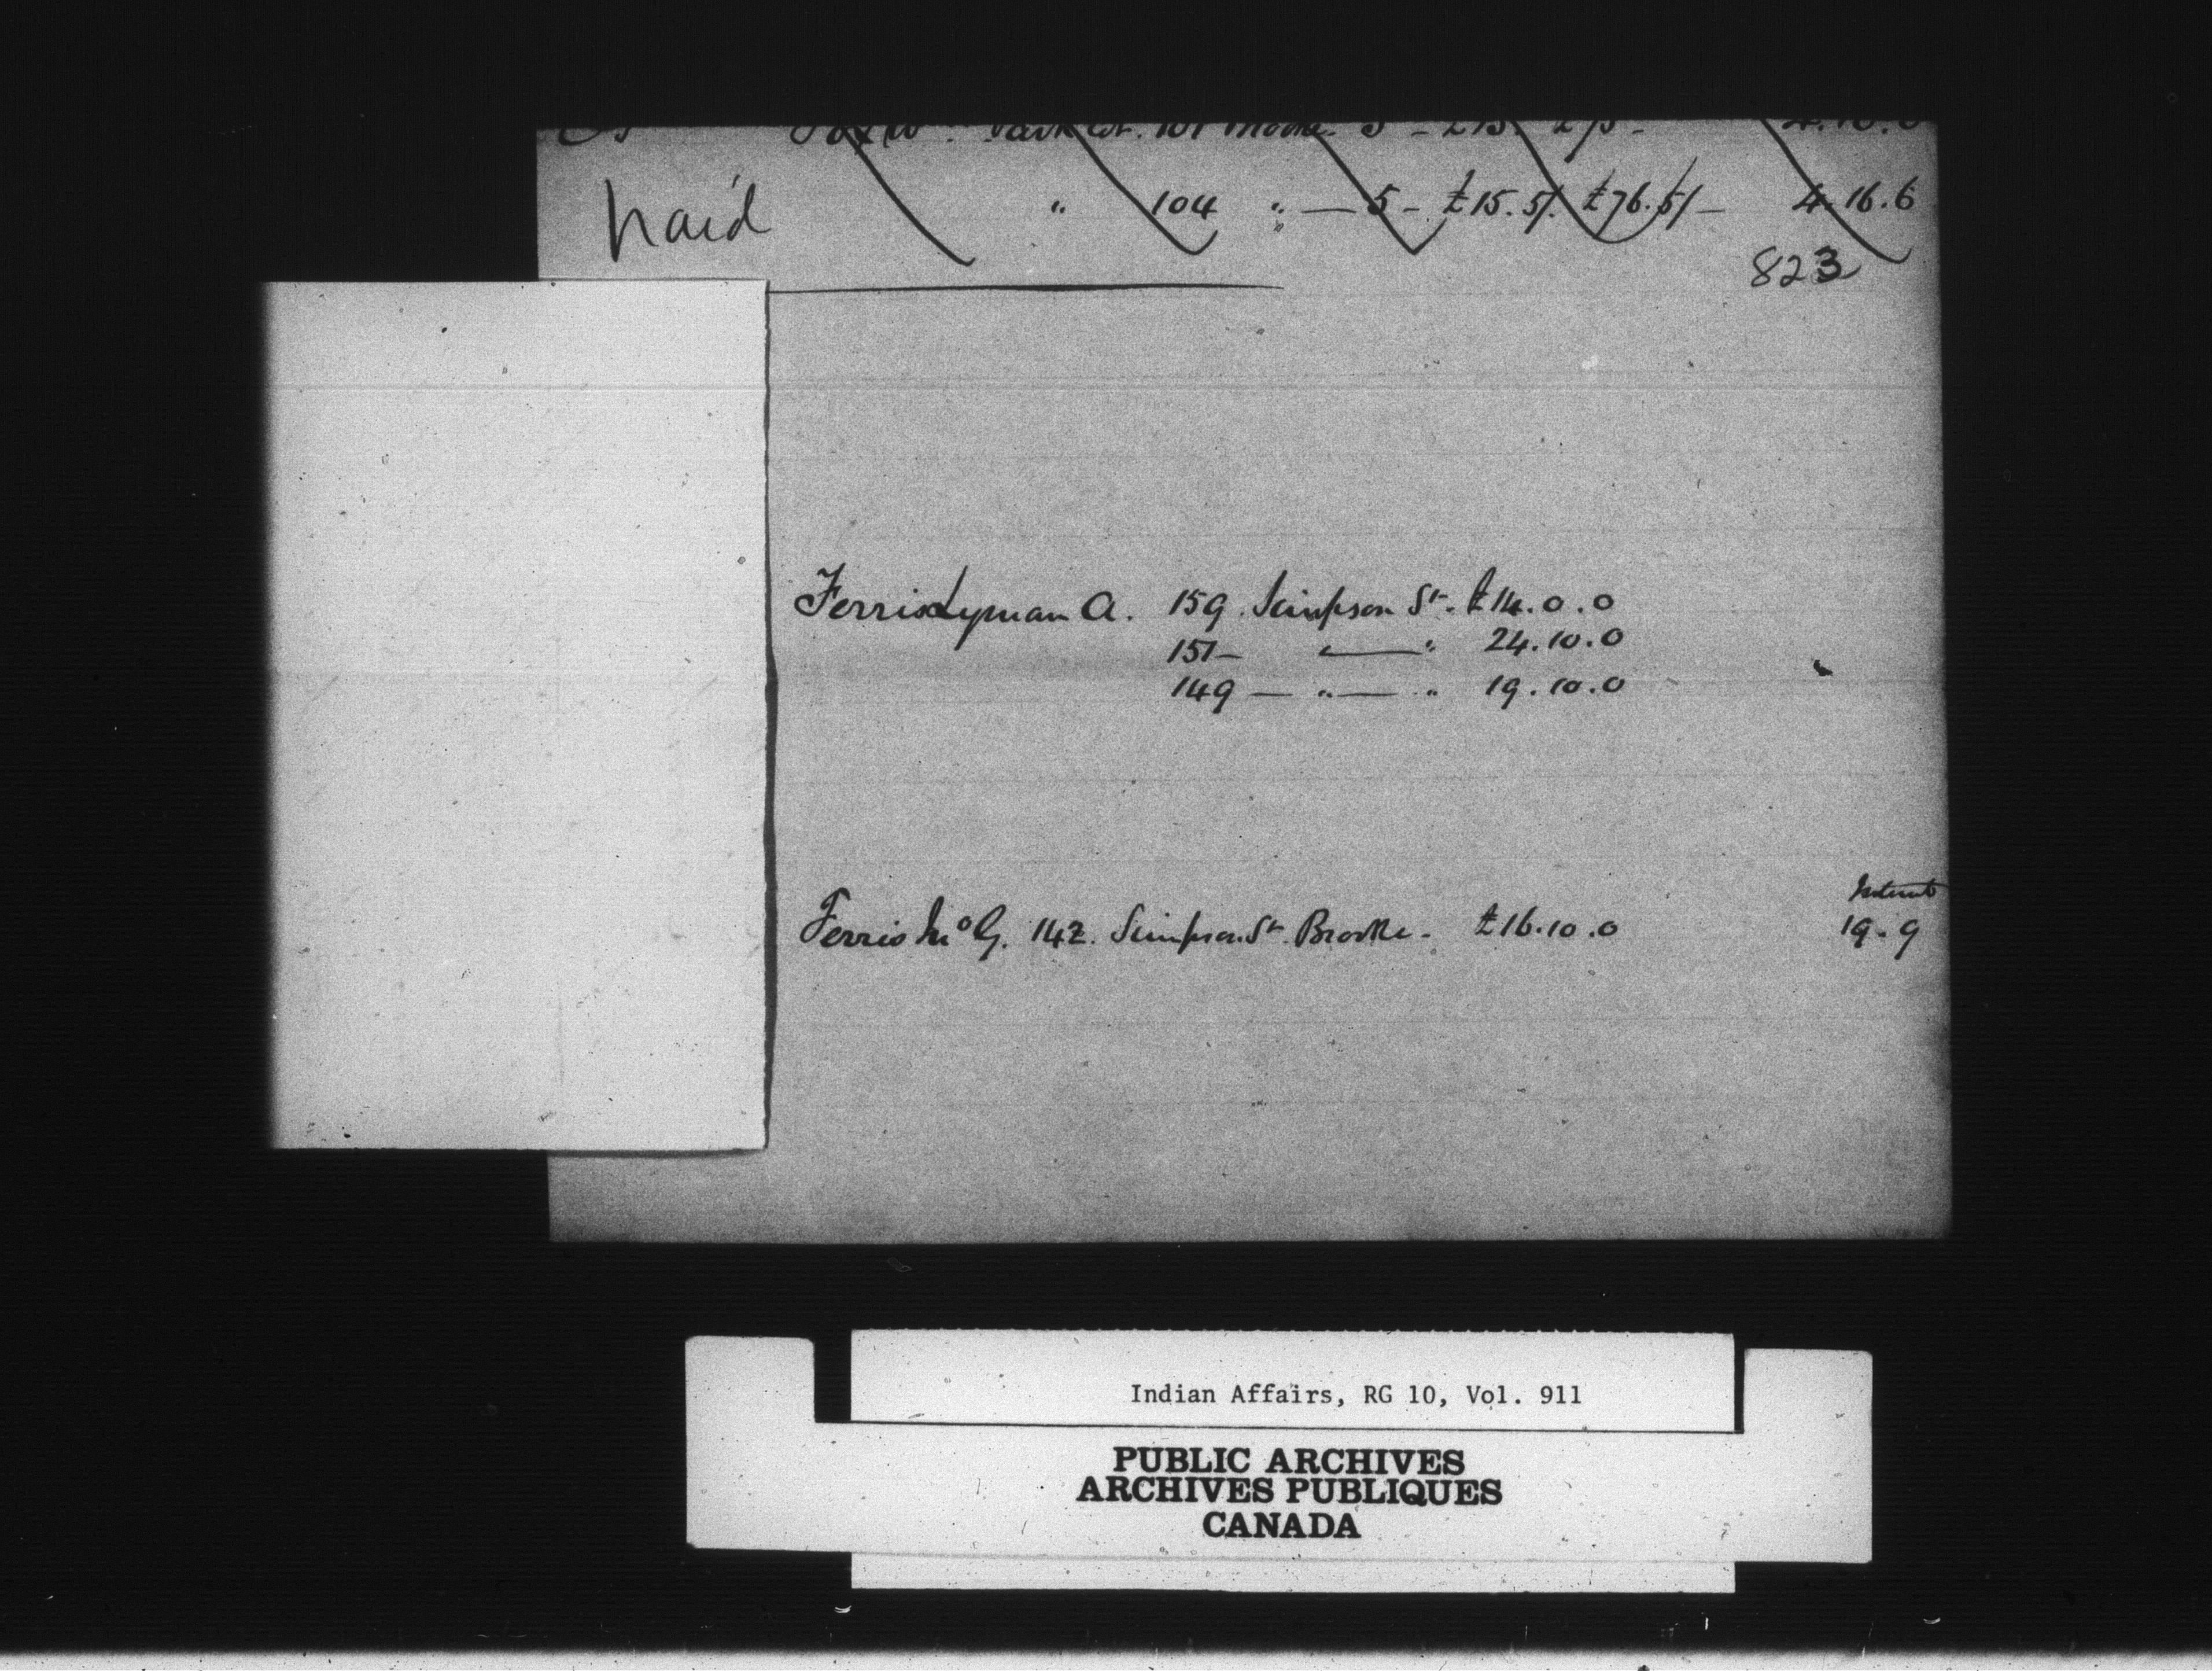 Park Lot. 101 Brooke 5 - £15
paid " 104 " — 5 - £15.5/. £76.5/ — 4.16.6
823
Ferris Lyman A. 159. Simpson St. £14.0.0
151 — " 24.10.0
149 — " — " 19.10.0
Interest
Ferris Mc G. 142. Simpson St. Brooke - £16.10.0 19.9
Indian Affairs, RG 10, Vol. 911
PUBLIC ARCHIVES
ARCHIVES PUBLIQUES
CANADA